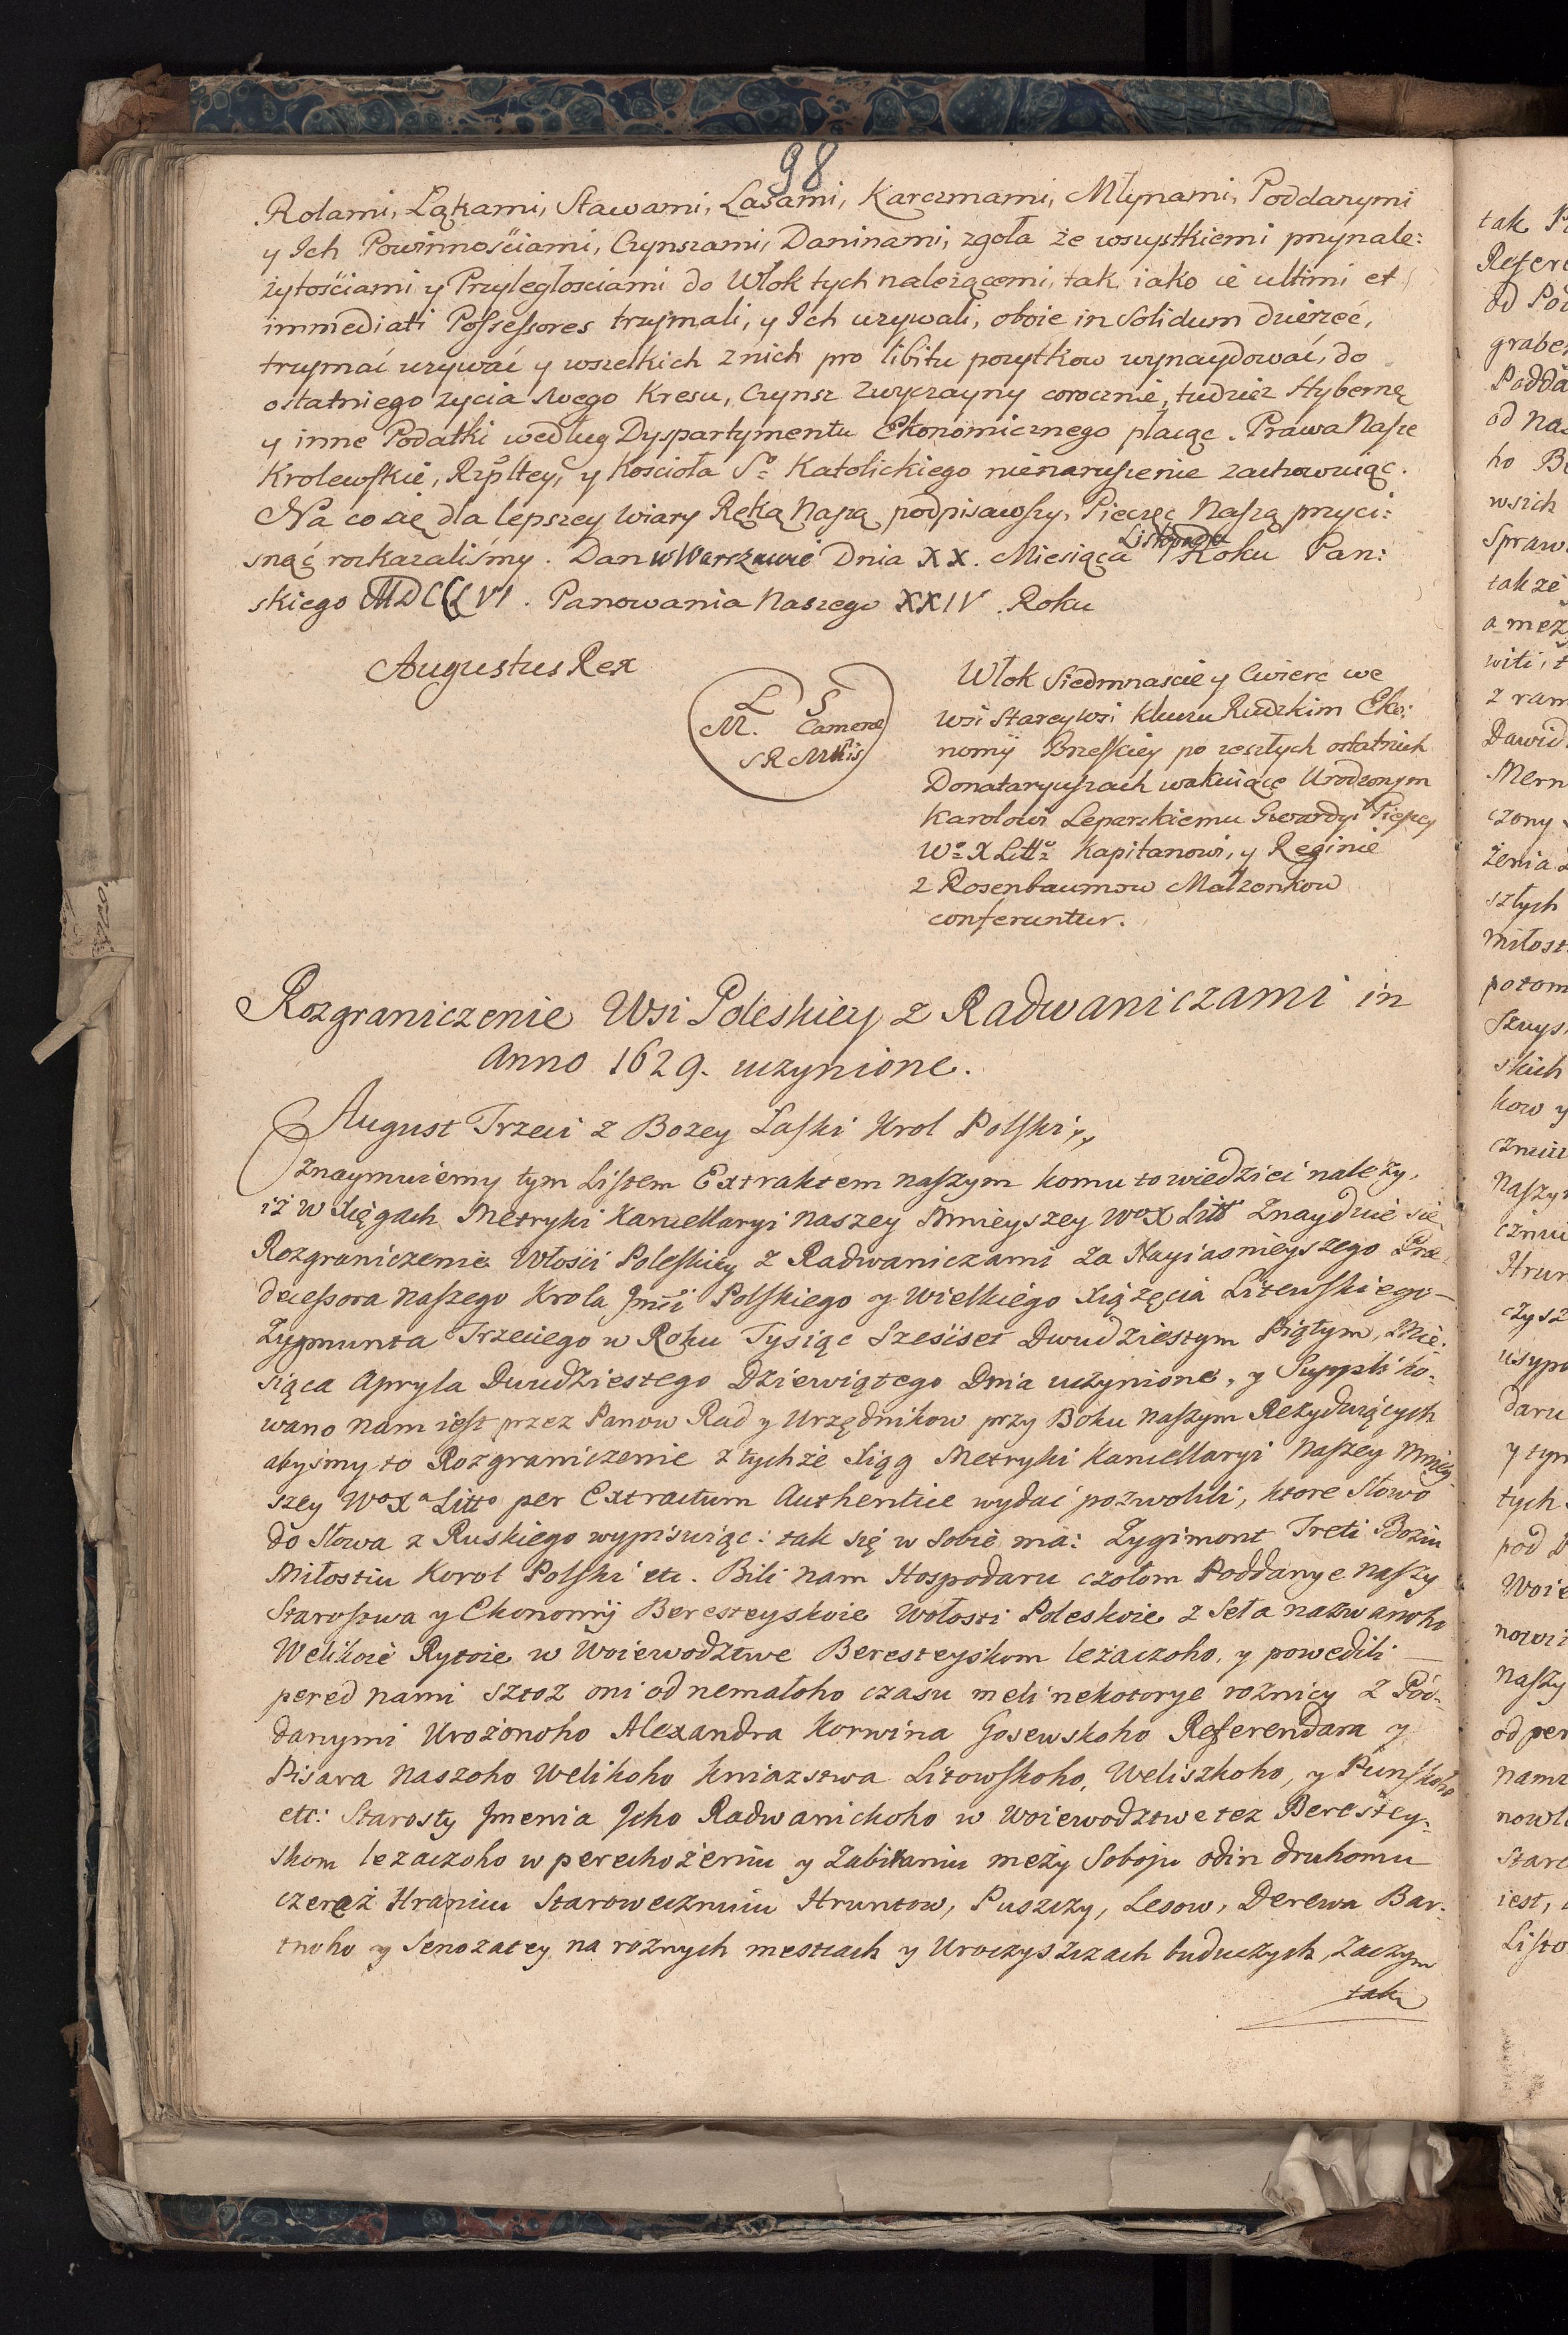 98
Rolami, Łąkami, Stawami, Lasami, Karczmami, Młynami, Poddanymi
y Ich Powinnościami, Czynszami, Daninami, zgoła ze wszystkiemi przynale:
żytościami y Przyległosciami do Włok tych należącemi, tak iako ie ultimi et
immediati Possessores trzymali, y Ich uzywali, oboie in Solidum dzierzeć,
trzymać uzywać y wszelkich z nich pro libitu pozytkow wynaydować, do
ostatniego zycia swego Kresu, Czynsz zwyczayny corocznie, tudziez Hybernę
y inne Podatki według Dyspartymentu Ekonomicznego płacąc. Prawa Nasze
Krolewskie, Rzpltey, y Kosciola So Katolickiego nienaruszenie zachowuiąc.
Na co się dla lepszey Wiary Ręką Naszą podpisawszy, Pieczęć Naszą przyci:
snąć rozkazaliśmy. Dan w Warszawie Dnia XX. Miesiąca Listopada Roku Pan:
skiego MDCCLVI. Panowania Naszego XXIV. Roku
Augustus Rex
L S
M. Camerae
S R Mttis
Włok Siedmnascie y Cwierc we
wsi Starey wsi Kluczu Rudzkim Eko:
nomij Brzeskiey po zeszłych ostatnich
Donataryuszach wakuiące Urodzonym
Karolowi Leparskiemu Gwardyi Pieszey
Wo X Litto Kapitanowi, y Reginie
z Rosenbaumow Malzonkow
conferuntur.
Rozgraniczenie Wsi Poleskiey z Radwaniczami in
Anno 1629. uczynione.
August Trzeci z Bozey Łaski Krol Polski
Oznaymuiemy tym Listem Extraktem naszym komu to wiedzieć należy,
iż w Xięgach Metryki Kancellaryi Naszey Mnieyszey Wo X Litt Znayduie się
Rozgraniczenie Włości Poleskiey z Radwaniczami za Nayiasnieyszego Prae
decessora naszego Krola Jmci Polskiego y Wielkiego Xiążęcia Litewskiego
Zygmunta Trzeciego w Roku Tysiąc Sześset Dwudziestym Piątym, Mie:
siąca Apryla Dwudziestego Dziewiątego Dnia uczynione, y Suppliko:
wano nam iest przez Panow Rad y Urzędnikow przy Boku naszym Rezyduiących
abyśmy to Rozgraniczenie z tychże Xiąg Metryki Kancellaryi Naszey Mniey
szey Wo Xa Litto per Extractum Authentice wydać pozwolili, ktore Słowo
do Słowa z Ruskiego wypisuiąc: tak się w sobie ma: Zygimont Treti Bożiu
Miłostiu Korol Polski etc. Bili nam Hospodaru czołom Poddanye naszy
Starostwa y Ekonomij Beresteyskoie Wołosti Poleskoie z Seła nazwanoho
Welikoie Rytoie w Woiewodztwe Beresteyskom leżaczoho, y powedili
pered nami sztoż oni od nemałoho czasu meli nekotorye roznicy z Pod-
danymi Urożonoho Alexandra Korwina Gosewskoho Referendara y
Pisara Naszoho Welikoho Kniazstwa Litowskoho, Weliszkoho, y Punskoho
etc: Starosty Jmenia Jeho Radwanickoho w Woiewodztwe tez Berestey-
skom leżaczoho w perechożeniu y Zabiraniu meży Soboju odin druhomu
czereż Hraniu Starowecznuiu Hruntow, Puszczy, Lesow, Derewa Bar-
tnoho y Senożatey na roznych mestcach y Uroczyszczach buduczych, Zaczym
tak